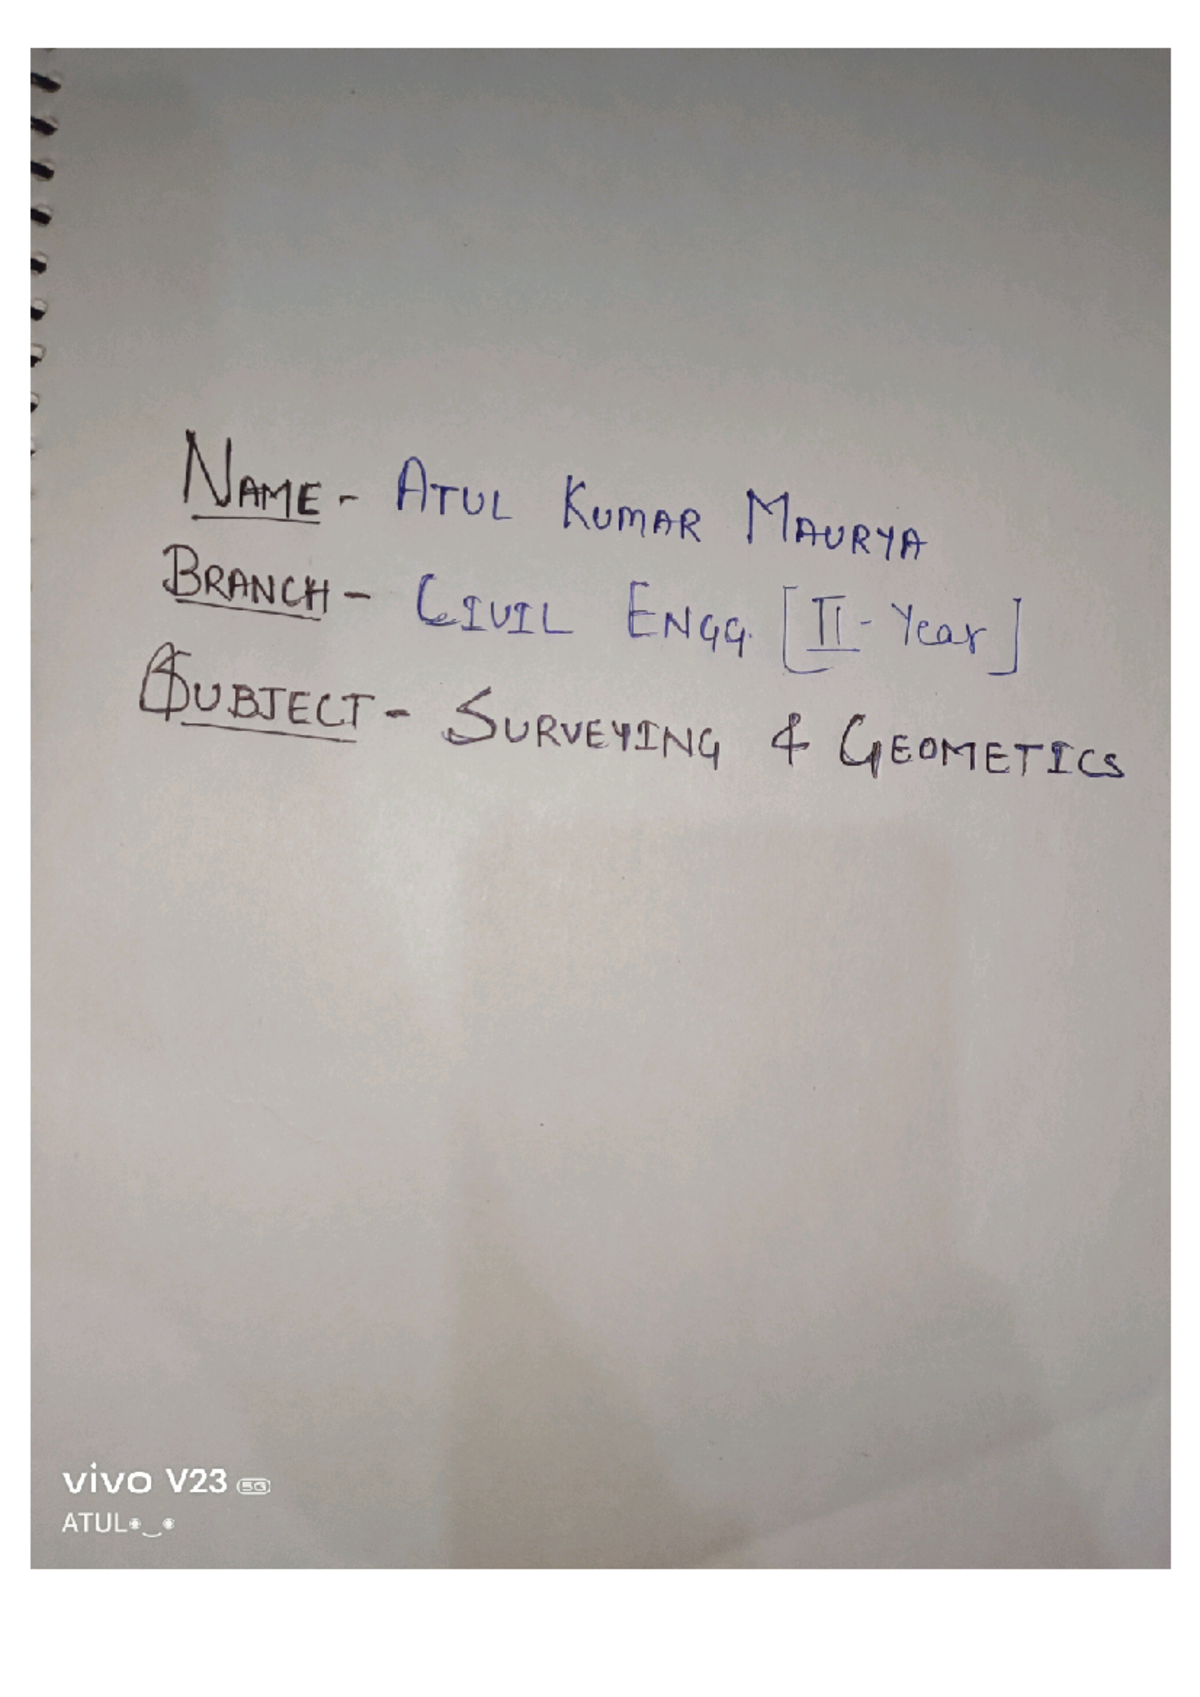 NAME - ATUL KUMAR MAURYA
BRANCH - CIVIL ENGG. [II - Year]
SUBJECT - SURVEYING & GEOMETICS
vivo V23 5G
ATUL◉‿◉